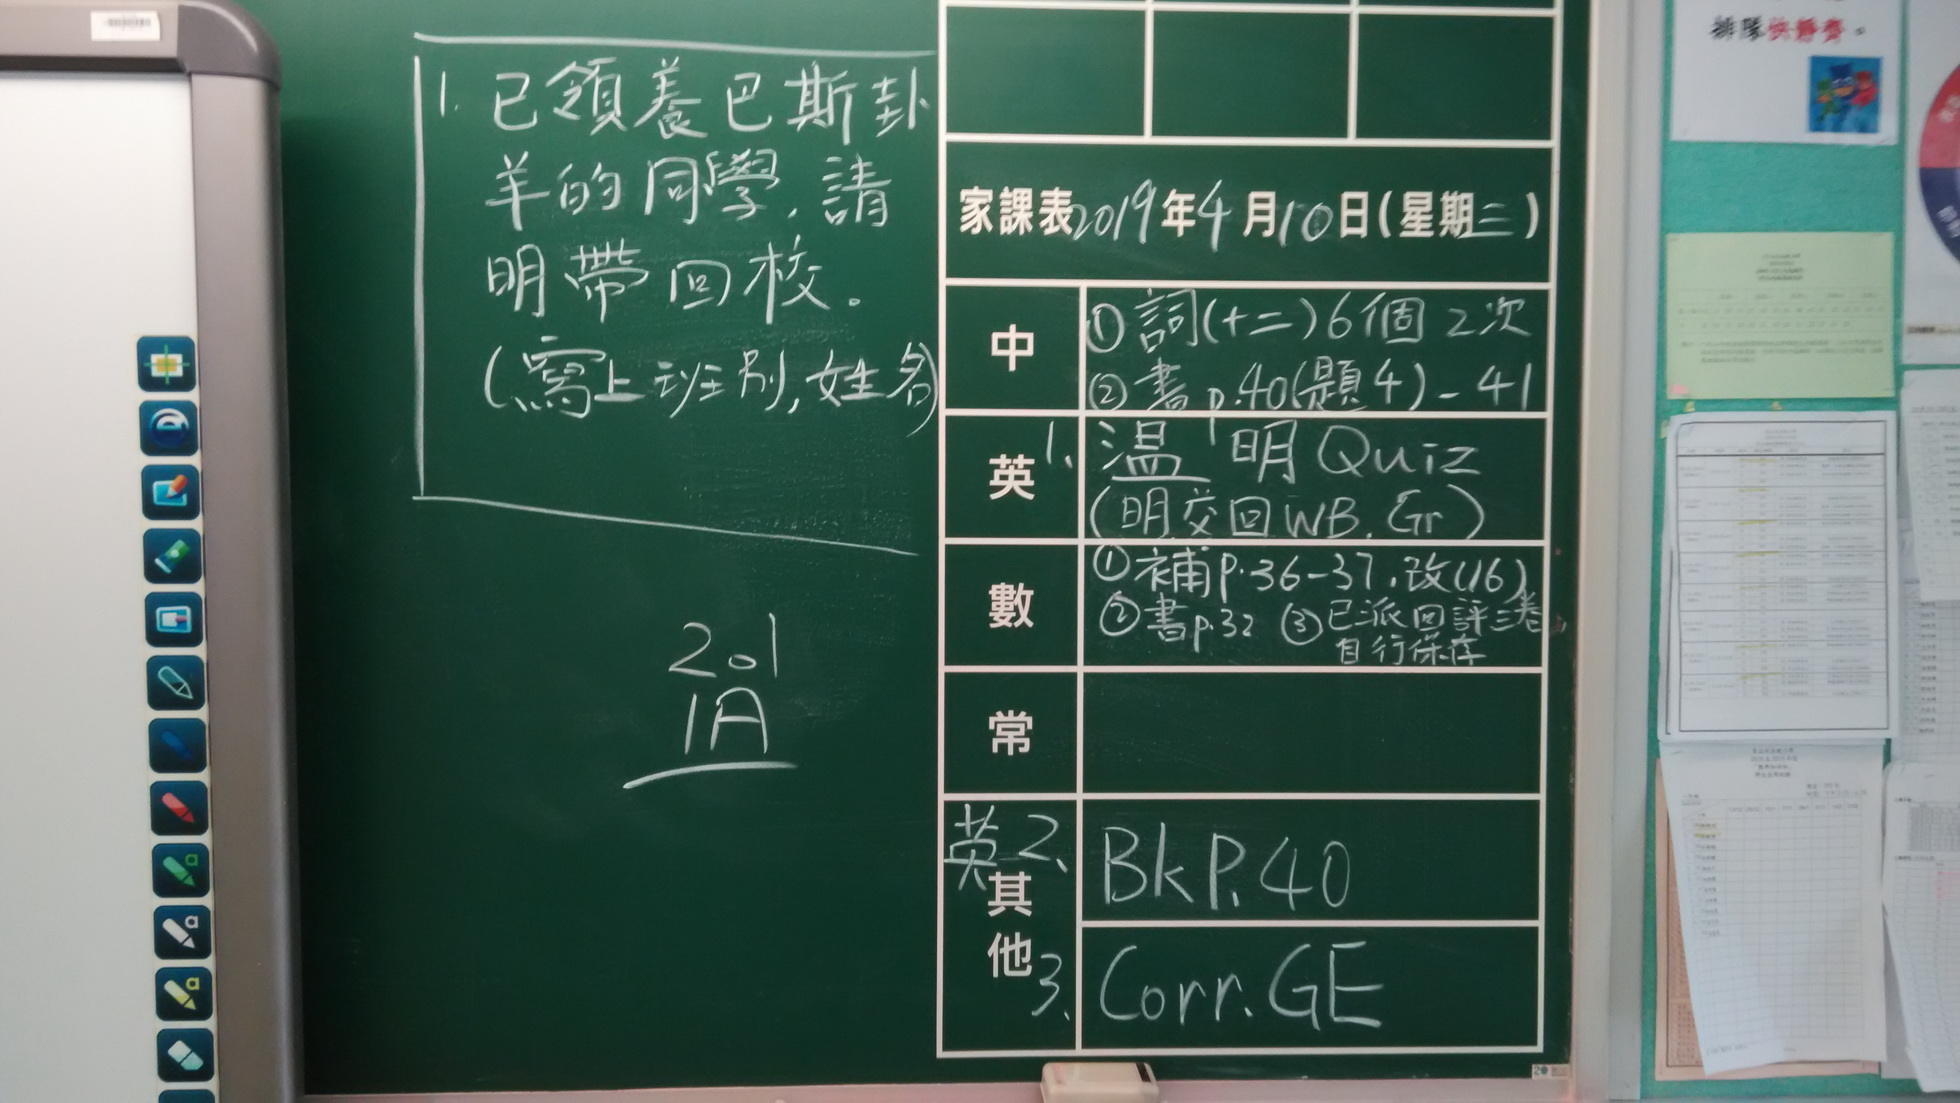 1. 已領養巴斯卦
羊的同學,請
明帶回校。
(寫上班別,姓名)
201
1A
家課表2019年4月10日(星期三)
中
①詞(十二)6個 2次
②書p.40(題4)-41
英
1、溫 明Quiz
(明交回WB. Gr)
數
①補P.36-37.改(16)
②書p.32 ③已派回評三卷
自行保存
常
其他
英2、BkP.40
3、Corr. GE
排隊快靜齊。